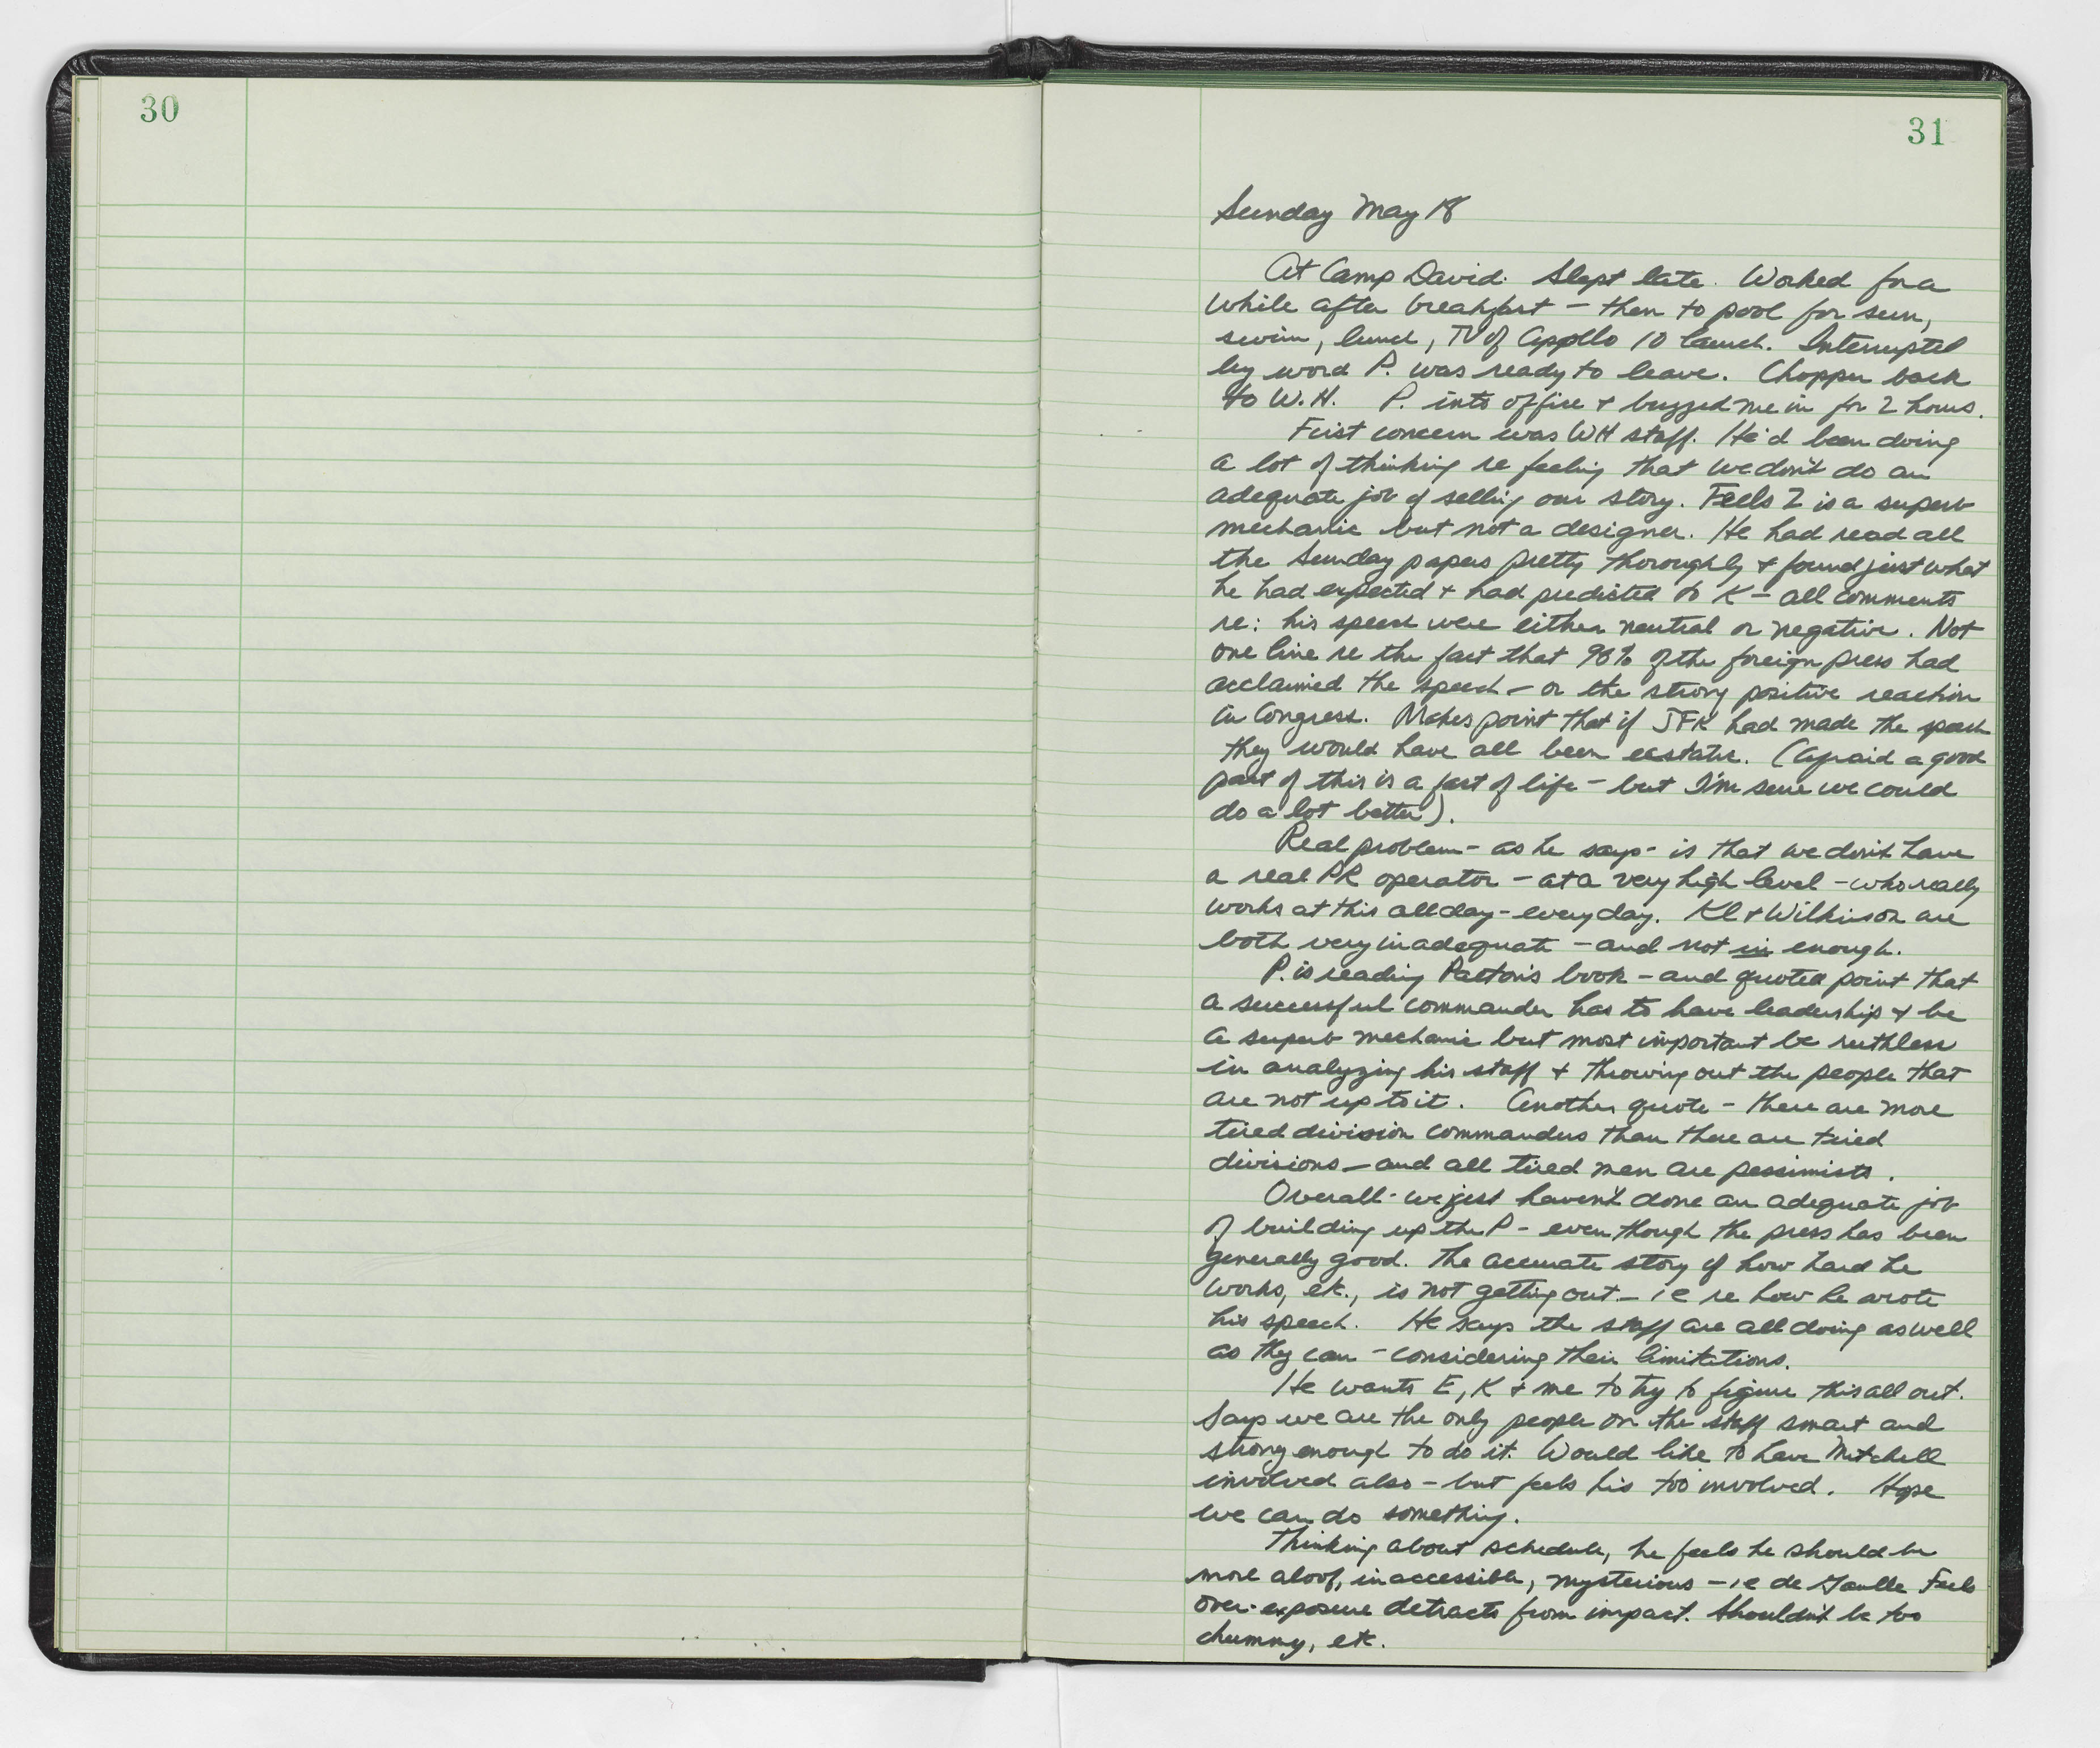 30
31
Sunday May 18
At Camp David. Slept late. Worked for a
while after breakfast – then to pool for sun,
swim, lunch, TV of Apollo 10 launch. Interrupted
by word P. was ready to leave. Chopper back
to W.H. P. into office + buzzed me in for 2 hours.
First concern was WH staff. He'd been doing
a lot of thinking re feeling that we don't do an
adequate job of selling our story. Feels Z is a superb
mechanic but not a designer. He had read all
the Sunday papers pretty thoroughly + found just what
he had expected + had predicted to K – all comments
re: his speech were either neutral or negative. Not
one line re the fact that 90% of the foreign press had
acclaimed the speech – or the strong positive reaction
in Congress. Makes point that if JFK had made the speech
they would have all been ecstatic. (Afraid a good
part of this is a fact of life – but I'm sure we could
do a lot better).
Real problem – as he says – is that we don't have
a real PR operator – at a very high level – who really
works at this all day – every day. Kl + Wilkinson are
both very inadequate – and not in enough.
P. is reading Patton's book – and quoted point that
a successful commander has to have leadership + be
a superb mechanic but most important be ruthless
in analyzing his staff + throwing out the people that
are not up to it. Another quote – there are more
tired division commanders than there are tired
divisions – and all tired men are pessimists.
Overall – we just haven't done an adequate job
of building up the P – even though the press has been
generally good. The accurate story of how hard he
works, etc., is not getting out – ie re how he wrote
his speech. He says the staff are all doing as well
as they can – considering their limitations.
He wants E, K + me to try to figure this all out.
Says we are the only people on the staff smart and
strong enough to do it. Would like to have Mitchell
involved also – but feels his too involved. Hope
we can do something.
Thinking about schedule, he feels he should be
more aloof, inaccessible, mysterious – ie de Gaulle Feels
over-exposure detracts from impact. Shouldn't be too
chummy, etc.